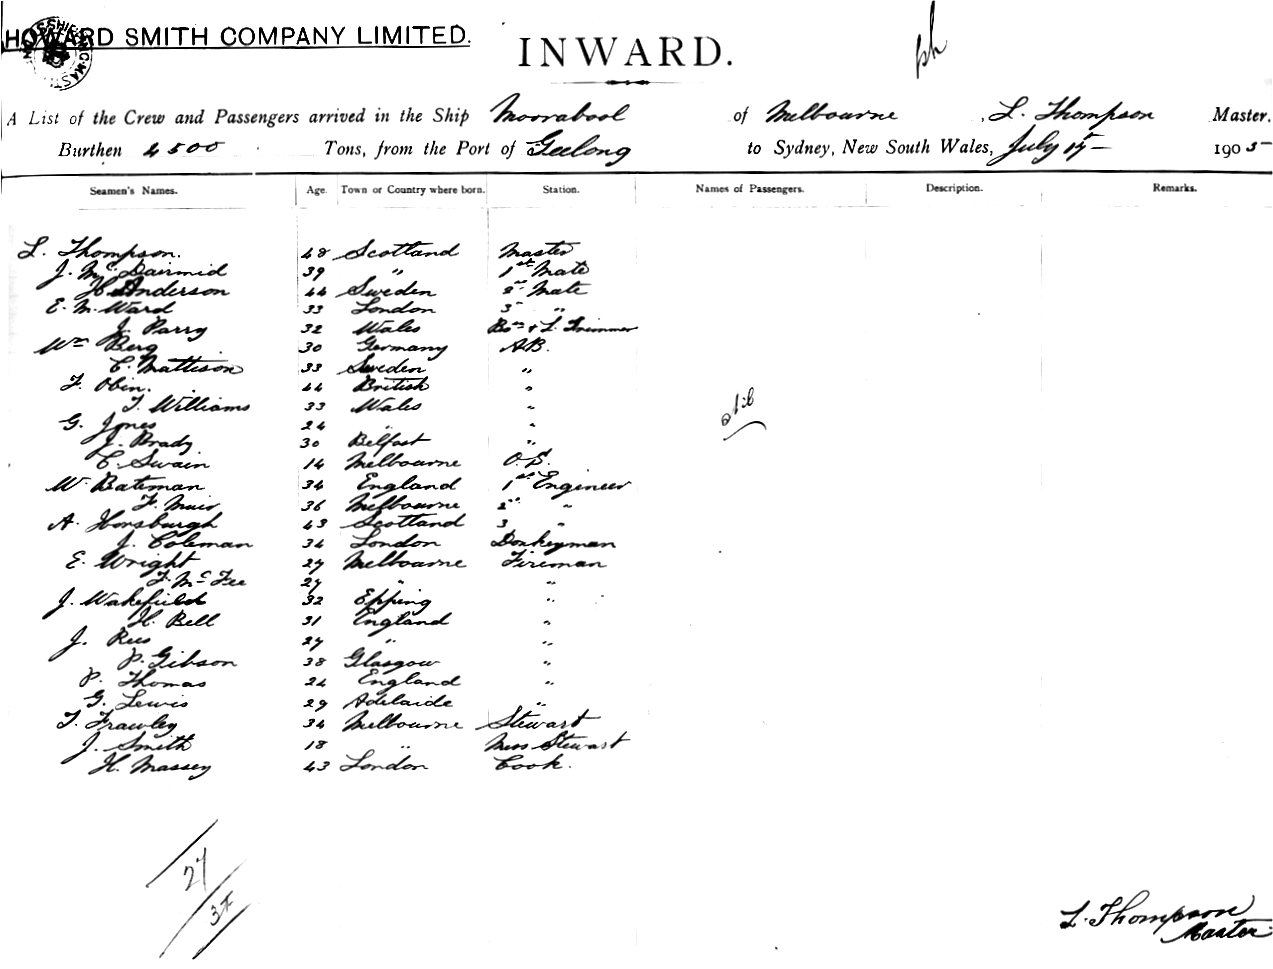 HOWARD SMITH COMPANY LIMITED.
INWARD.
A List of the Crew and Passengers arrived in the Ship Moorabool of Melbourne, L. Thompson Master.
Burthen 4500 Tons, from the Port of Geelong to Sydney, New South Wales, July 15 1905
Seamen's Names. Age. Town or Country where born. Station. Names of Passengers. Description. Remarks.
L. Thompson. 48 Scotland Master
J. McDairmid 39 " 1st Mate
H. Anderson 44 Sweden 2nd Mate
E. M. Ward 33 London 3 "
J. Parry 32 Wales Bosn & L. Trimmer
Wm Berg 30 Germany A.B.
C. Mattison 33 Sweden "
F. Obin. 44 British "
T. Williams 33 Wales "
G. Jones 24 " "
J. Brady 30 Belfast "
C. Swain 14 Melbourne O.S.
W. Bateman 34 England 1st Engineer
F. Muir 36 Melbourne 2nd "
A. Horsburgh 43 Scotland 3 "
J. Coleman 34 London Donkeyman
E. Wright 27 Melbourne Fireman
F. McFee 27 " "
J. Wakefield 32 Epping "
H. Bell 31 England "
J. Rees 27 " "
P. Gibson 38 Glasgow "
P. Thomas 24 England "
G. Lewis 29 Adelaide "
T. Frawley 34 Melbourne Stewart
J. Smith 18 " Mess Stewart
H. Massey 43 London Cook.
Nil
27
L. Thompson
Master